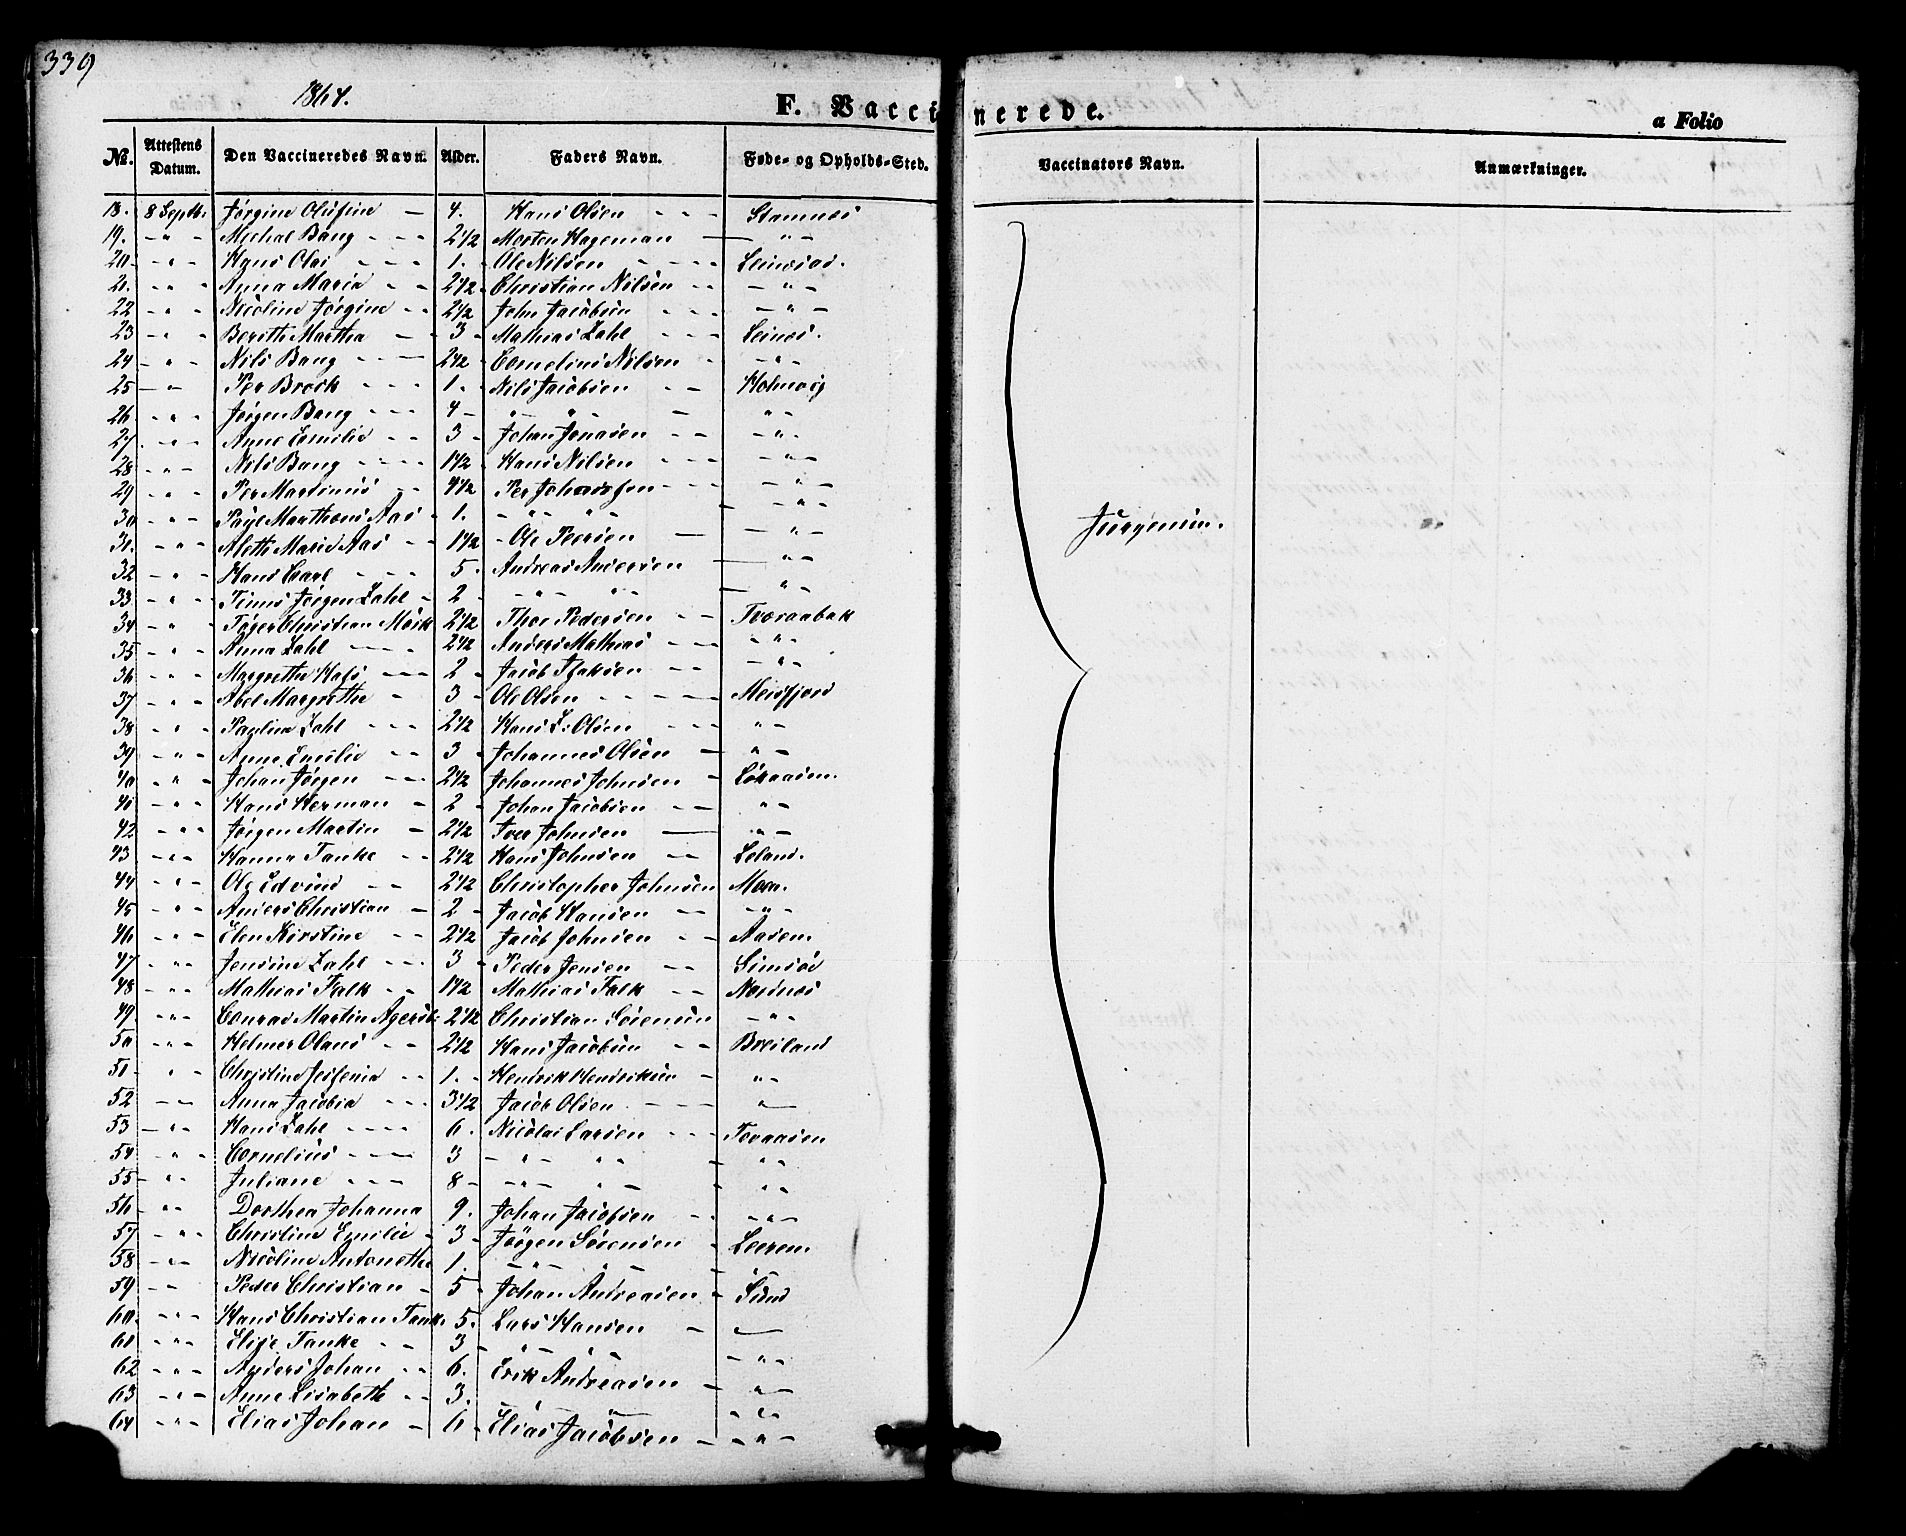 339
1864.
F. Vaccinerede.
a Folio
No. Attestens Datum. Den Vaccineredes Navn. Alder. Faders Navn. Føde- og Opholds-Sted. Vaccinators Navn. Anmærkninger.
18. 8 Septb. Jørgine Olufine — 4. Hans Olsen - - - Stamnes
19. - " - Michal Bang - - - 2 1/2 Morten Hageman — - " -
20 - " - Hans Olai - - - 1. Ole Nilsen - - - -
21. - " - Anna Maria - - 2 1/2 - Christian Nilsen - - - " -
22 - " - Nicoline Jørgine - - 2 1/2 John Jacobsen - - - - " -
23 - " - Berith Martha - - 3 - Mathias Zahl - - - Leines.
24 - " - Nils Bang - - — 2 1/2 - Cornelius Nilsen - - " -
25 - " - Per Brock - - - 1. - Nils Jacobsen - - Holmvig
26 - " - Jørgen Bang - - - 4 - - " - " - — " -
27. - " - Anne Emilie - - 3 - Johan Jonasen - - - " -
28 - " - Nils Bang - - - - 1 1/2 - Hans Nilsen - - - - " -
29 - " - Per Martinus - - 4 1/2 Per - - - - " -
30 - " - Aas - 1. - " - " " - " -
31. - " - Aleth Marie Aas - - 1 1/2 - Ole Peersen — - " -
32 - " - Hans Carl - - - 5. Andreas Andersen — " -
33 - " - Jørgen Zahl - 2 - - " - " " - " -
34 - " Christian Mørk 2 1/2 Thor Pedersen - - Tværaabak
35 - " - Anna Zahl - - - . 2 1/2 Anders Mathias - - - " -
36 - " - Margrethe - - 2 - Jacob - - - " -
37 - " - Abel Margrethe - 3 - Ole Olsen - - - - Meisfjord
38 - " - Pauline Zahl - - - 2 1/2 Hans Z: Olsen - - - " -
39 - " - Anne Emilie - - 3 - Johannes Olsen — " -
40 - " - Johan Jørgen - - - 2 1/2 Johannes Johnsen -
41 - " - Hans Herman - 2 - Johan Jacobsen - - " -
42 - " - Jørgen Martin - 2 1/2 Iver Johnsen — " -
43 - " - Hanna Tanke - - 2 1/2 Hans Johnsen - - Leland.
44 - " - Ole Edvind - - 2 1/2 Christopher Johnsen
45 - " - Anders Christian - 2 - Jacob Hansen - - - " -
46 - " - Elen Kirstine - - 2 1/2 Jacob Johnsen - - Aasen.
47 - " - Jensine Zahl - - - 3 - Peder Jensen - -
48 - " - Mathias Falk - - 1 1/2 Mathias Falk - - Nordnes
49. - " - Conrad Martin 2 1/2 Christian Sørensen - " -
50 - " - Helmer Olaus - - 2 1/2 Hans Jacobsen - - Breiland
51 - " - Christine - - 1. - Henrik Henriksen - " -
52 - — Anna Jacobia - - - 3 1/2 Jacob Olsen - - - - "
53 - " - Hans Zahl - - - - 6. Nicolai Larsen - - -
54 - " - Cornelius - - - 3 - " - " " - " "
55 - " - Juliane - - - 8 - - " - " - - " "
56 - " - Dorthea Johanna 9. Johan Jacobsen - - - " -
57 - " - Christine Emilie - 3 - Jørgen Sørensen - Leeren.
58 - " - Nicoline Antonethe 1. - " - " - -
59 - " - Peder Christian - 5 - Johan Andreasen - Sund
60 - " - Hans Christian Tanke 5. Lars Hansen - "
61 - " - Elise Tanke - - 3 - " " " - " -
62 - " - Anders Johan - - 6. Erik Andreasen - " -
63 - " - Anne Lisabeth - - 3. - " " - " -
64 - " - Elias Johan - 6 - Elias Jacobsen - - " -